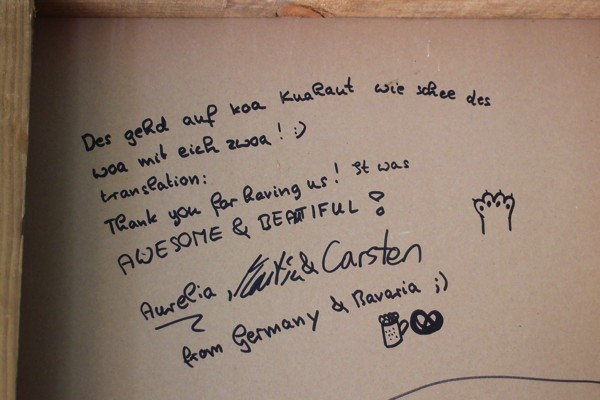 Des gehd auf koa Kuahaut wie schee des
woa mit eich zwoa! :)
translation:
Thank you for having us! It was
AWESOME & BEAUTIFUL!
Aurelia, & Carsten
from Germany & Bavaria ;)